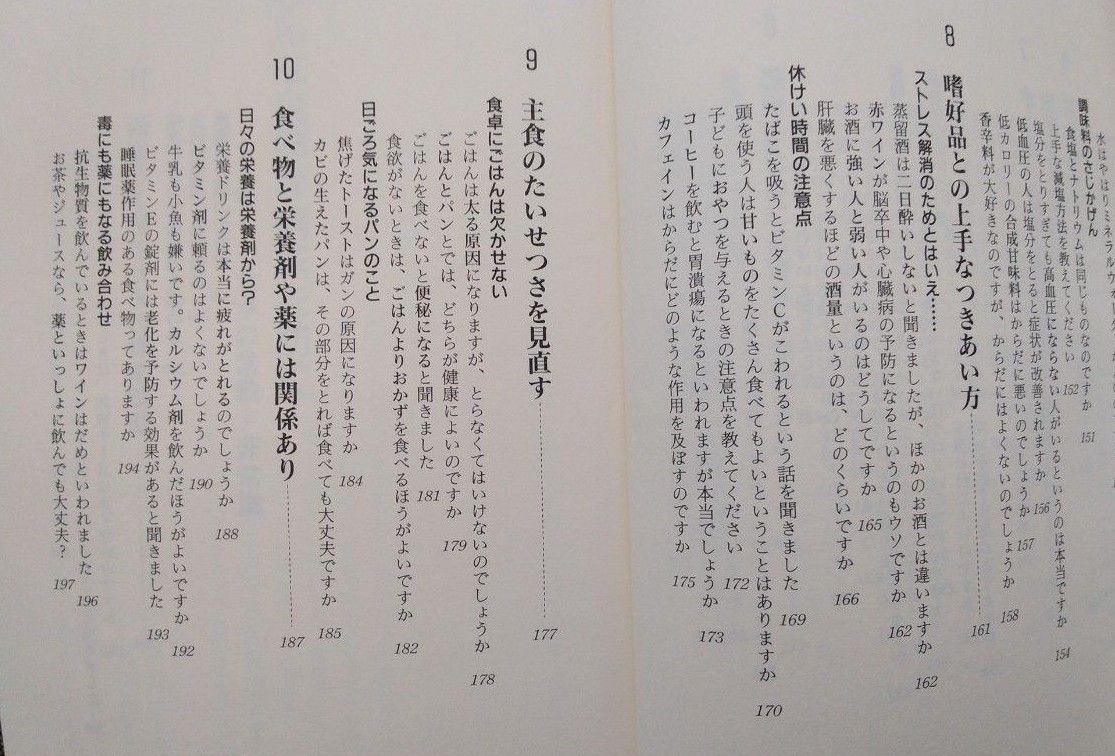 水はやはりミネラルウ
調味料のさじかげん
食塩とナトリウムは同じものなのですか 151
上手な減塩方法を教えてください 152
塩分をとりすぎても高血圧にならない人がいるというのは本当ですか 154
低血圧の人は塩分をとると症状が改善されますか 156
低カロリーの合成甘味料はからだに悪いのでしょうか 157
香辛料が大好きなのですが、からだにはよくないのでしょうか 158
8 嗜好品との上手なつきあい方 161
ストレス解消のためとはいえ……
蒸留酒は二日酔いしないと聞きましたが、ほかのお酒とは違いますか 162
赤ワインが脳卒中や心臓病の予防になるというのもウソですか 162
お酒に強い人と弱い人がいるのはどうしてですか 165
肝臓を悪くするほどの酒量というのは、どのくらいですか 166
休けい時間の注意点
たばこを吸うとビタミンCがこわれるという話を聞きました 169
頭を使う人は甘いものをたくさん食べてもよいということはありますか 170
子どもにおやつを与えるときの注意点を教えてください 172
コーヒーを飲むと胃潰瘍になるといわれますが本当でしょうか 173
カフェインはからだにどのような作用を及ぼすのですか 175
9 主食のたいせつさを見直す 177
食卓にごはんは欠かせない
ごはんは太る原因になりますが、とらなくてはいけないのでしょうか 178
ごはんとパンとでは、どちらが健康によいのですか 179
ごはんを食べないと便秘になると聞きました 181
食欲がないときは、ごはんよりおかずを食べるほうがよいですか 182
日ごろ気になるパンのこと
焦げたトーストはガンの原因になりますか 184
カビの生えたパンは、その部分をとれば食べても大丈夫ですか 185
10 食べ物と栄養剤や薬には関係あり 187
日々の栄養は栄養剤から?
栄養ドリンクは本当に疲れがとれるのでしょうか 188
ビタミン剤に頼るのはよくないでしょうか 190
牛乳も小魚も嫌いです。カルシウム剤を飲んだほうがよいですか 192
ビタミンEの錠剤には老化を予防する効果があると聞きました 193
睡眠薬作用のある食べ物ってありますか 194
毒にも薬にもなる飲み合わせ
抗生物質を飲んでいるときはワインはだめといわれました 196
お茶やジュースなら、薬といっしょに飲んでも大丈夫? 197